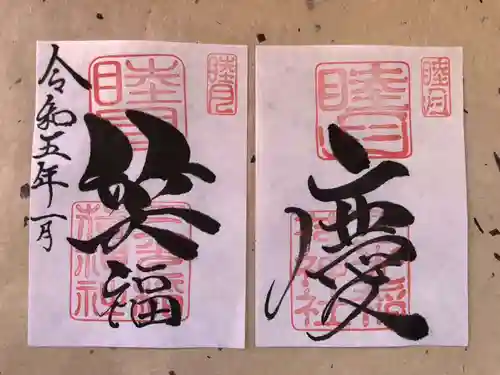 令和五年一月
睦月
睦月
笑福
睦月
睦月
慶